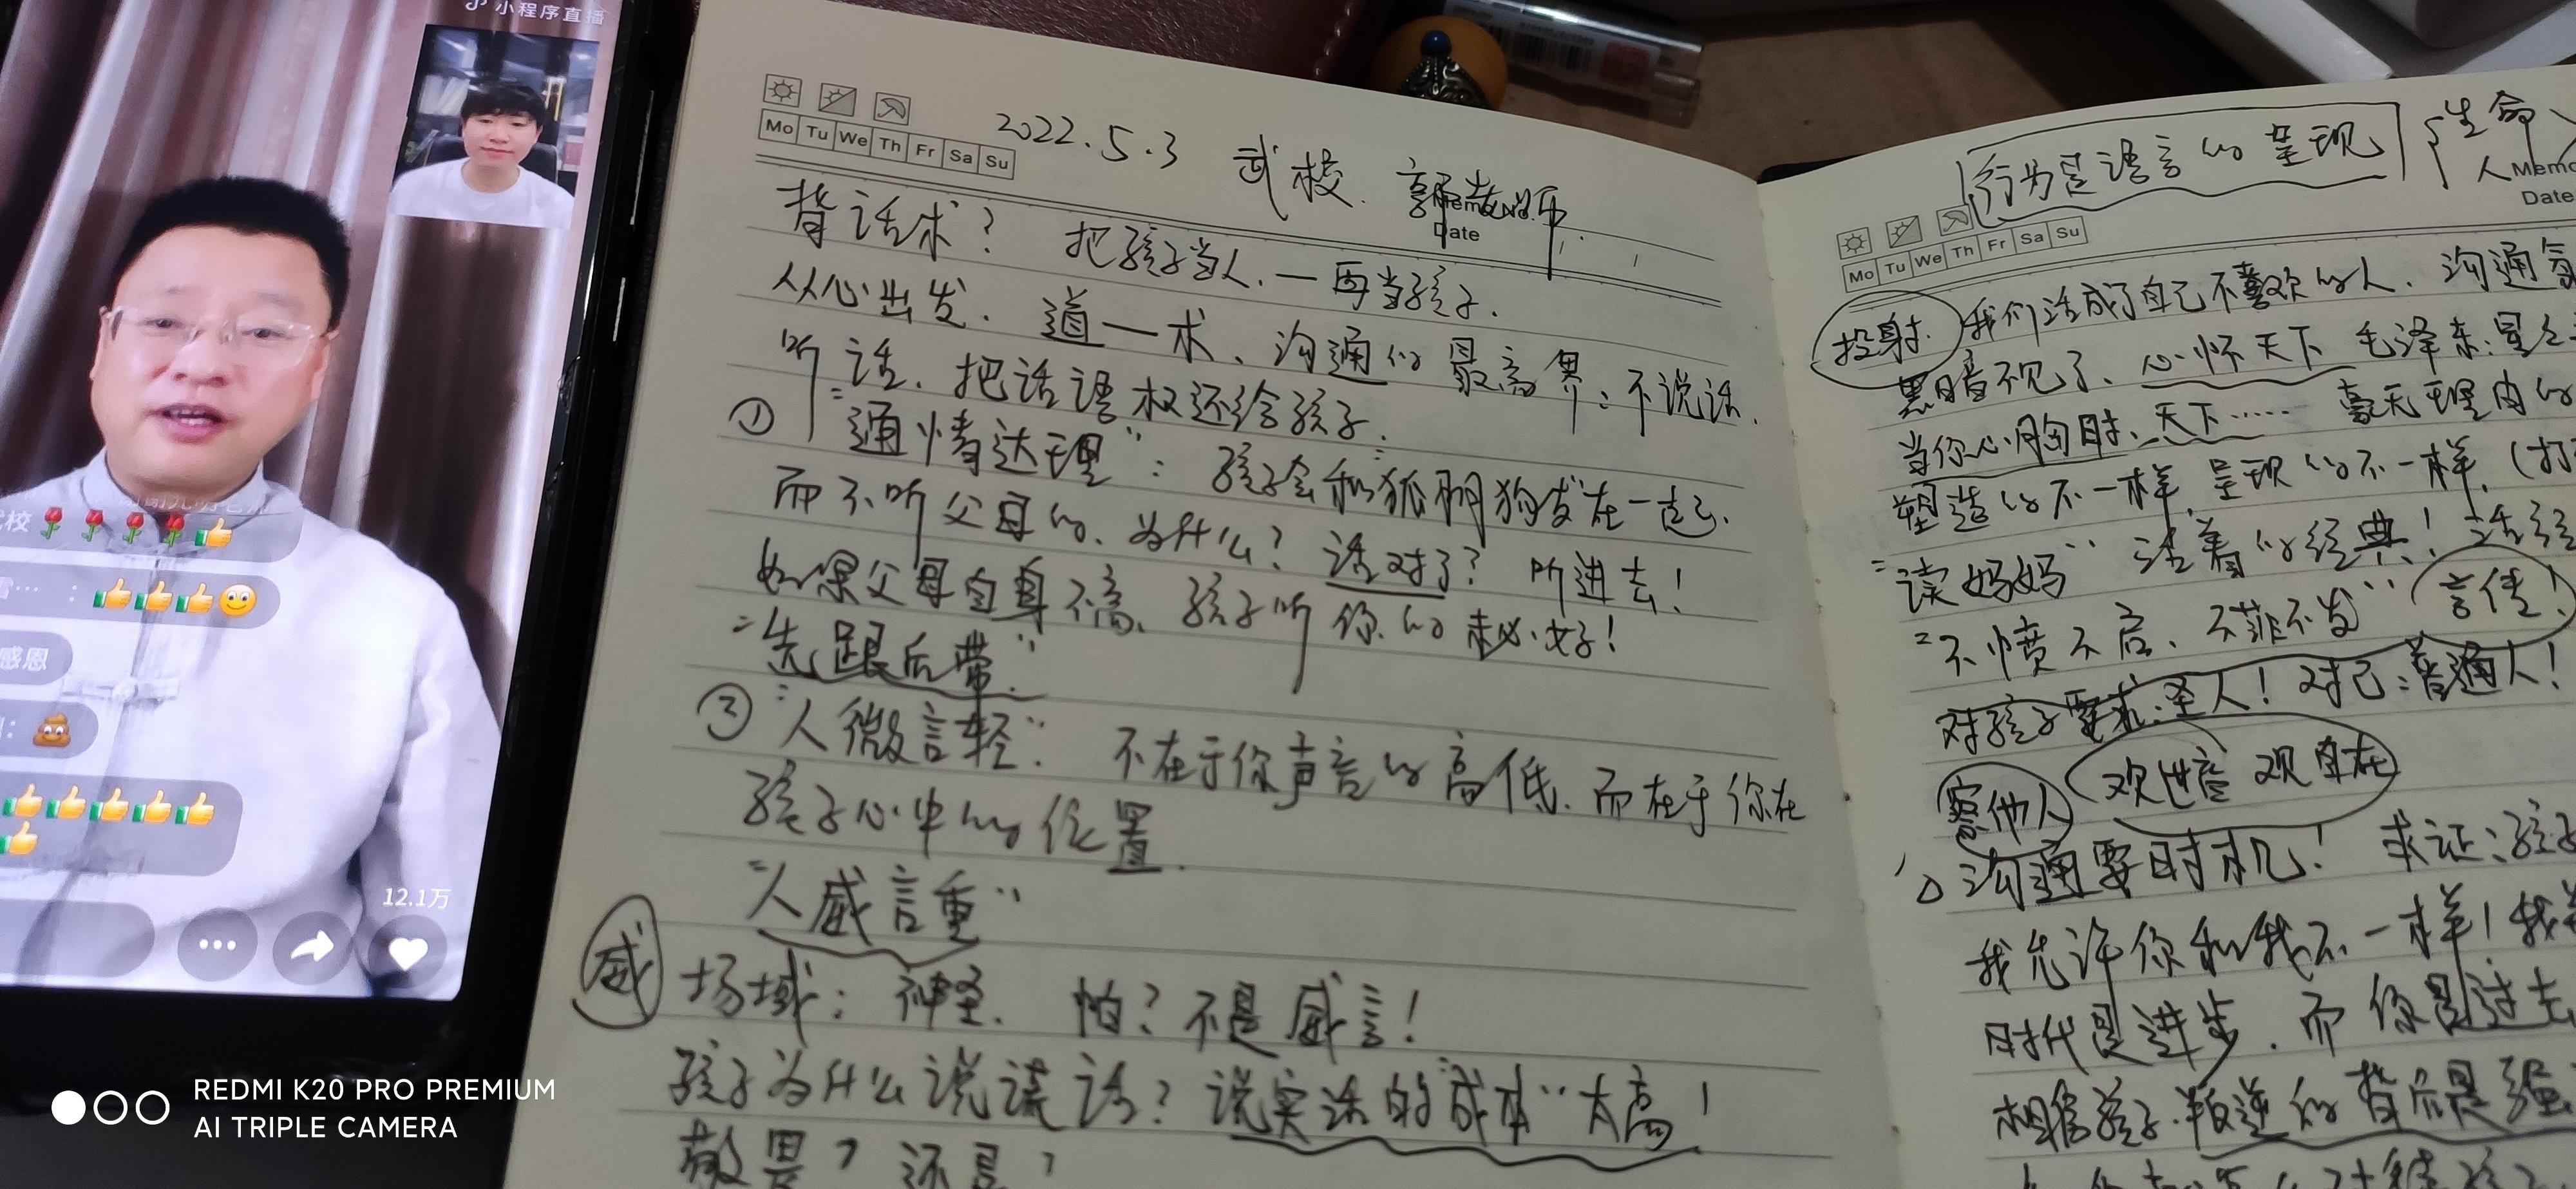 小程序直播
校🌹🌹🌹🌹👍
… : 👍👍👍🙂
感恩
: 💩
👍👍👍👍👍
👍
12.1万
REDMI K20 PRO PREMIUM
AI TRIPLE CAMERA
Mo Tu We Th Fr Sa Su
2022.5.3 武校 郭老师
Memo No.
Date
背话术? 把孩子当人.一再当孩子.
从心出发. 道一术、沟通的最高界:不说话.
听话. 把话语权还给孩子.
① "通情达理": 孩子会和狐朋狗友在一起.
而不听父母的、为什么? 话对了? 听进去!
如果父母自身不高、孩子听你的越少好!
"先跟后带".
② "人微言轻". 不在于你声音的高低.而在于你在
孩子心中的位置.
"人威言重"
威 场域: 神圣. 怕?不是威言!
孩子为什么说谎话?说实话的"成本"太高!
敬畏? 还是?
行为是语言的呈现 生命
人
Memo
Date
Mo Tu We Th Fr Sa Su
投射. 我们活成了自己不喜欢的人. 沟通
黑暗不见了、心怀天下 毛泽东:星
当你心胸时、天下…… 毫无理由的
塑造的不一样,呈现的不一样,(打
"读妈妈" 活着的经典! 活经
"不愤不启、不悱不发" 言传!
对孩子要求:圣人! 对己:普通人!
察他人 观世音 观自在
① 沟通要时机! 求证:孩子
我允许你和我不一样!我
时代是进步.而你是过去
相信孩子.叛逆的背后是强